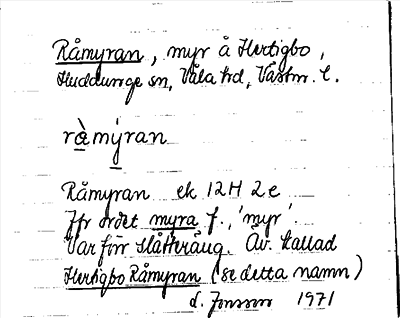 Råmyran, myr å Hertigbo,
Huddunge sn, Våla hd, Västm. l.
rå̀mý̱ran
Råmyran ek 12H 2e
Jfr ordet myra f., 'myr'.
Var förr slåtteräng. Äv. kallad
Hertigbo Råmyran (se detta namn)
d. Jonsson 1971